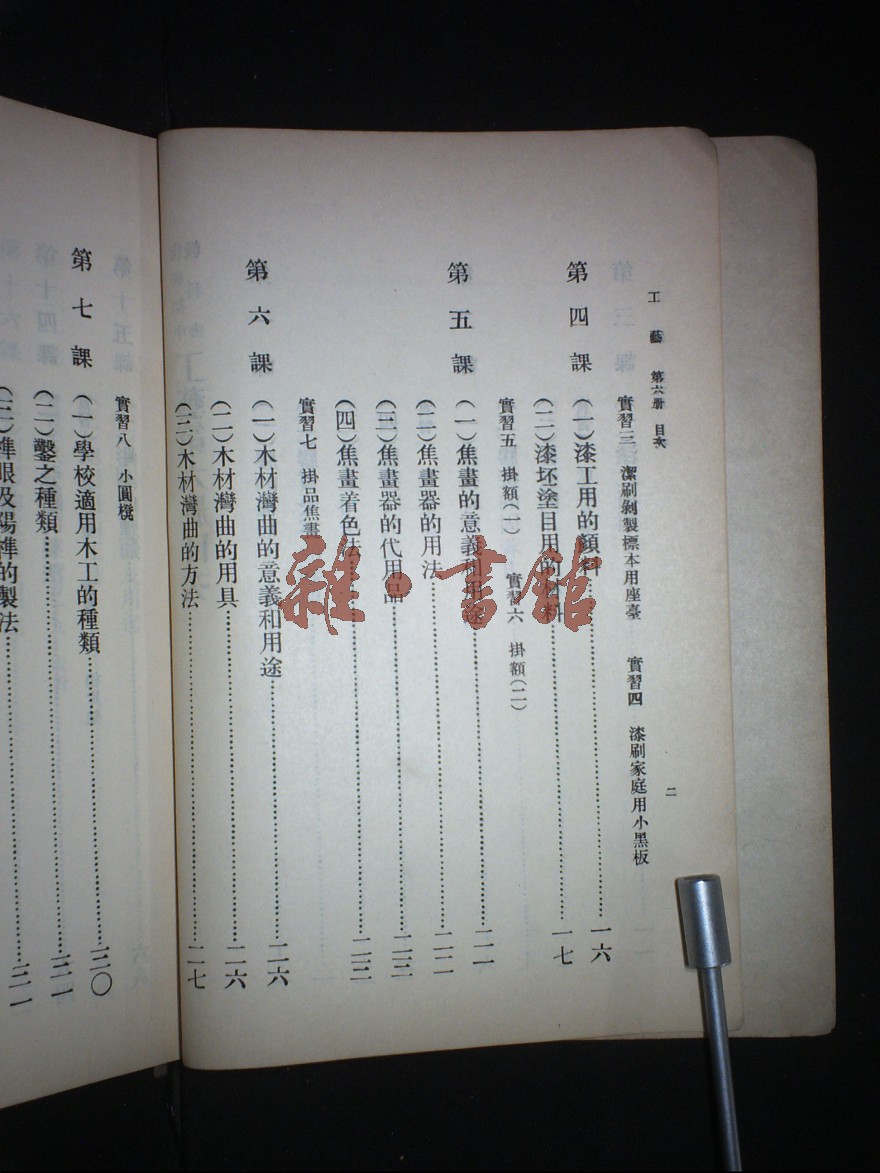 工藝 第六册 目次 二
實習三 潔刷剝製標本用座臺 實習四 漆刷家庭用小黑板
第四課 (一)漆工用的顏料 一六
(二)漆坯塗目用的材料 一七
實習五 掛額(一) 實習六 掛額(二)
第五課 (一)焦畫的意義和用途 二一
(二)焦畫器的用法 二二
(三)焦畫器的代用品 二三
(四)焦畫着色法 二三
實習七 掛品焦畫
第六課 (一)木材灣曲的意義和用途 二六
(二)木材灣曲的用具 二六
(三)木材灣曲的方法 二七
實習八 小圓櫈
第七課 (一)學校適用木工的種類 三〇
(二)鑿之種類 三一
(三)榫眼及陽榫的製法 三一
雜·書館